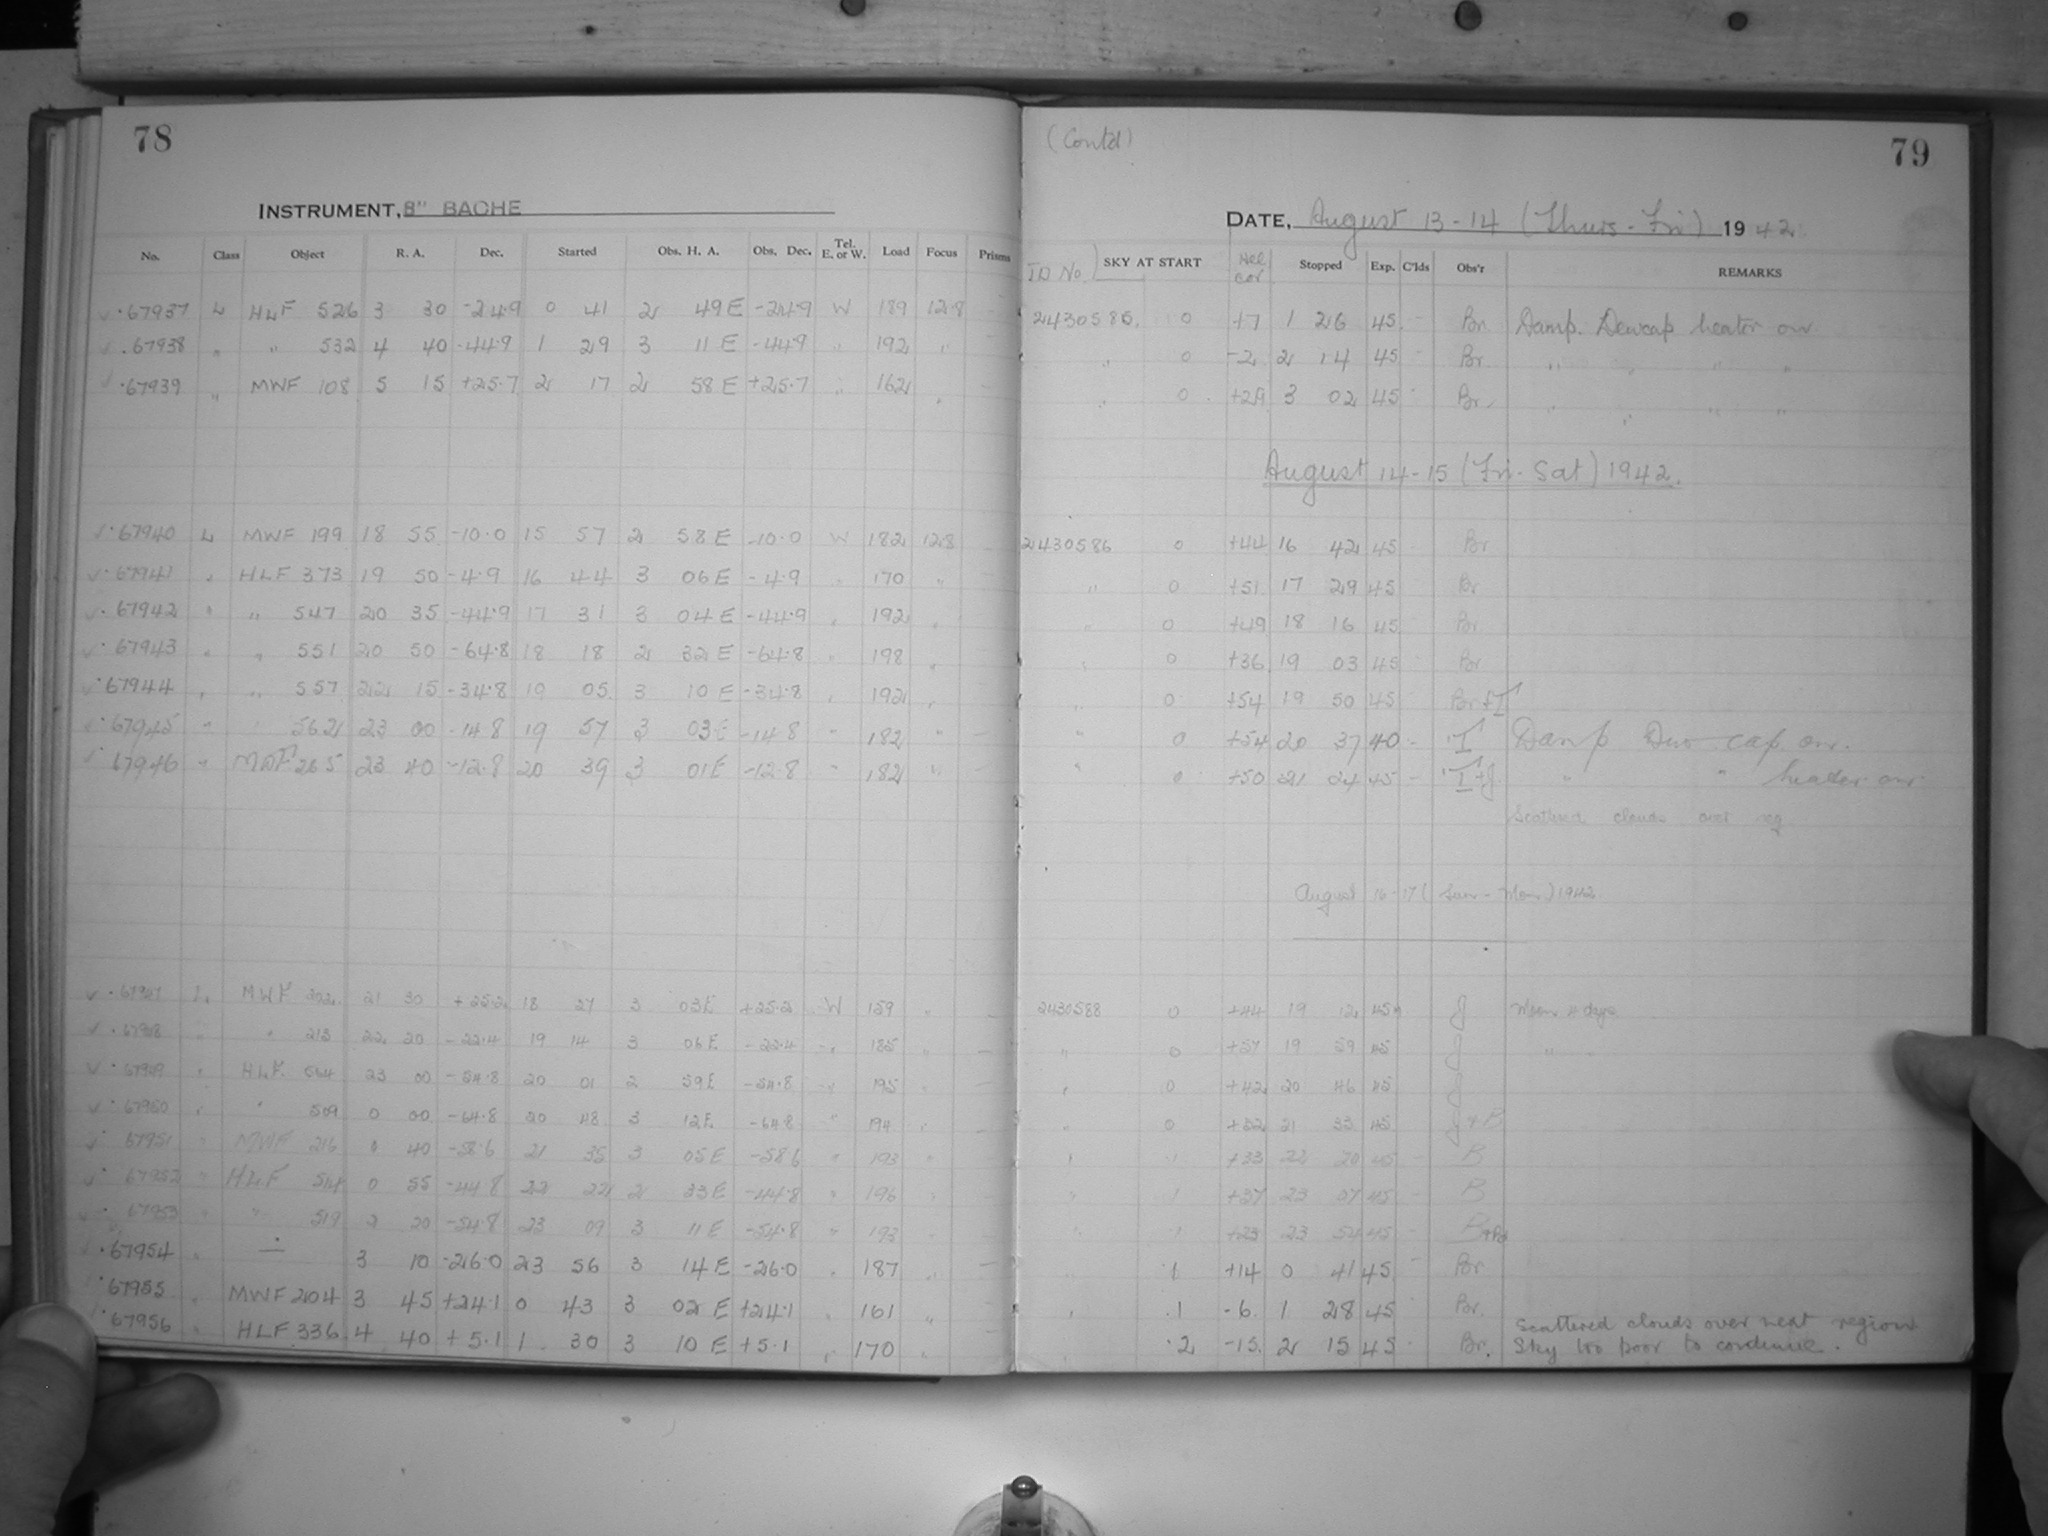 78
INSTRUMENT, 8" BACHE
No. Class Object R. A. Dec. Started Obs. H. A. Obs. Dec. Tel. E. or W. Load Focus Prisms
67937 L HLF 526 3 30 -24.9 0 41 2 49 E -24.9 W 189 12.8
67938 " " 532 4 40 -44.9 1 29 3 11 E -44.9 " 192 "
67939 " MWF 108 5 15 +25.7 2 17 2 58 E +25.7 " 162 "
67940 L MWF 199 18 55 -10.0 15 57 2 58 E -10.0 W 182 12.8
67941 " HLF 373 19 50 -4.9 16 44 3 06 E -4.9 " 170 "
67942 " " 547 20 35 -44.9 17 31 3 04 E -44.9 " 192 "
67943 " " 551 20 50 -64.8 18 18 2 32 E -64.8 " 198 "
67944 " " 557 22 15 -34.8 19 05 3 10 E -34.8 " 192 "
67945 " " 562 23 00 -14.8 19 57 3 03 E -14.8 " 182 "
67946 " 265 23 40 -12.8 20 39 3 01 E -12.8 " 182 "
67947 L MWF 202 21 30 +25.2 18 27 3 03 E +25.2 W 159 "
67948 " " 213 22 20 -22.4 19 14 3 06 E -22.4 " 185 " –
67949 " HLF 564 23 00 -54.8 20 01 2 59 E -54.8 " 195 " –
67950 " " 509 0 00 -64.8 20 48 3 12 E -64.8 " 194 "
67951 " MWF 216 0 40 -58.6 21 35 3 05 E -58.6 " 193 "
67952 " HLF 514 0 55 -44.8 22 22 2 33 E -44.8 " 196 "
67953 " " 519 2 20 -54.8 23 09 3 11 E -54.8 " 193 "
67954 " — 3 10 -26.0 23 56 3 14 E -26.0 " 187 " –
67955 " MWF 204 3 45 +24.1 0 43 3 02 E +24.1 161 "
67956 " HLF 336 4 40 +5.1 1 30 3 10 E +5.1 " 170 "
(Contd)
79
DATE, August 13-14 (Thurs-Fri) 1942
JD No. SKY AT START Hel cor Stopped Exp. C'lds Obs'r REMARKS
2430585 0 +7 1 26 45 - Br. Damp. Dewcap heater on
" 0 -2 2 14 45 - Br. " " " "
" 0 +29 3 02 45 - Br. " " " "
August 14-15 (Fri-Sat) 1942.
2430586 0 +44 16 42 45 - Br
" 0 +51 17 29 45 - Br
" 0 +49 18 16 45 - Br
" 0 +36 19 03 45 - Br
" 0 +54 19 50 45 - Br + T
" 0 +54 20 37 40 - T Damp Dew cap on.
" 0 +50 21 24 45 - T + J " " heater on
Scattered clouds over reg
August 16-17 (Sun-Mon) 1942.
2430588 0 +44 19 12 45 J Moon 4 days
" 0 +57 19 59 45 J "
" 0 +42 20 46 45 J
" 0 +52 21 33 45 J + B
" 1 +33 22 20 45 - B
" 1 +37 23 07 45 - B
" 1 +23 23 54 45 - B + Br
" 1 +14 0 41 45 - Br
" .1 -6 1 28 45 - Br.
Scattered clouds over next region
" .2 -15 2 15 45 - Br. Sky too poor to continue.